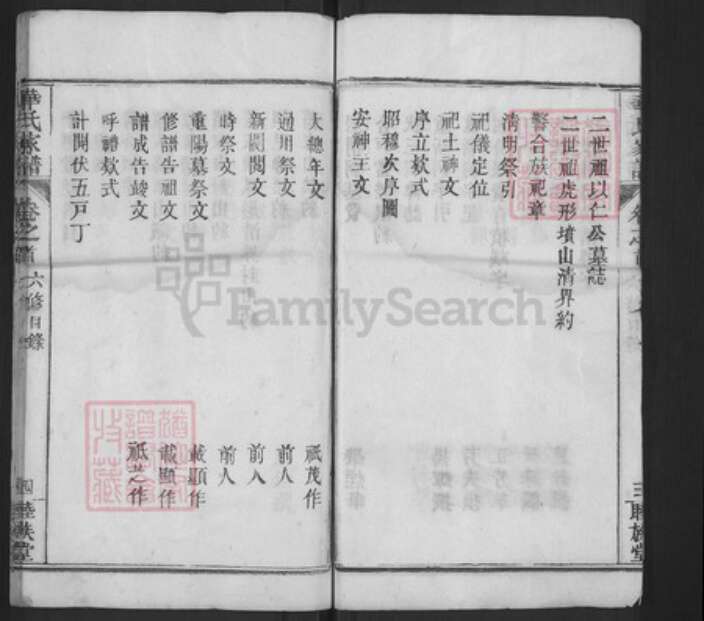 二世祖以仁公墓誌
二世祖虎形墳山清界約
合族祀章
清明祭引
祀儀定位
祀土神文
序立欵式
昭穆次序圖
安神主文
大總年文 祇茂作
通用祭文 前人
新閣閱文 前人
時祭文 前人
重陽墓祭文 載顯作
修譜告祖文 載顯作
譜成告竣文 祇芝作
呼禮欵式
計開伏五戸丁
華氏家譜
卷之首
六修目錄
睦族堂
三睦族堂
FamilySearch